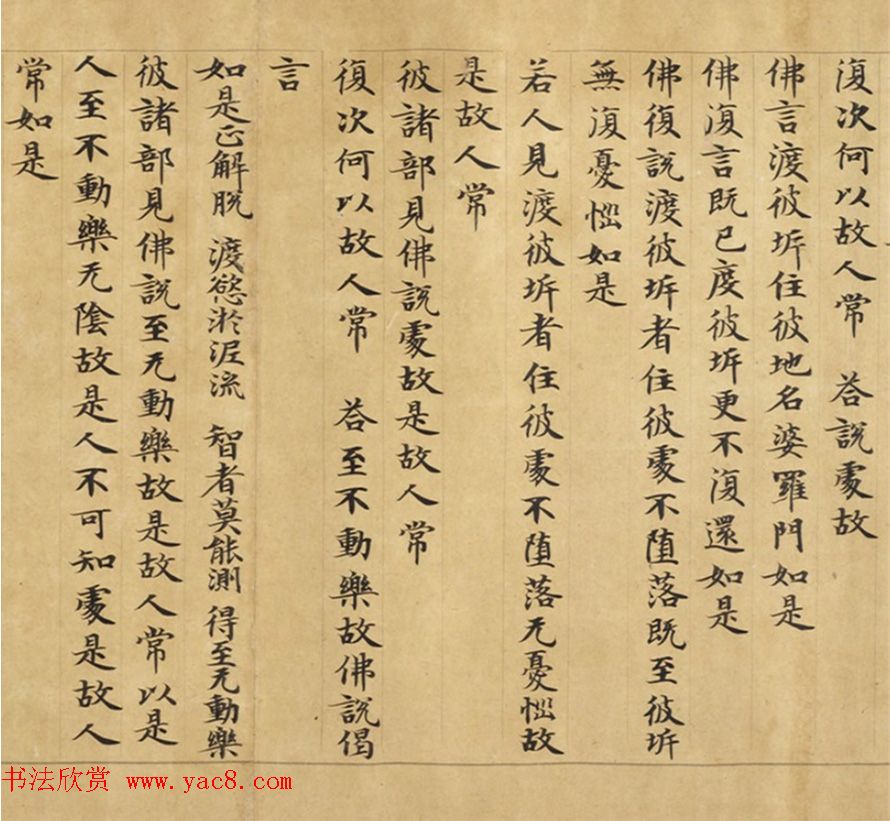 復次何以故人常　荅說處故
佛言渡彼坼住彼地名婆羅門如是
佛復言既已度彼坼更不復還如是
佛復說渡彼坼者住彼處不堕落既至彼坼
無復憂惱如是
若人見渡彼坼者住彼處不堕落无憂惱故
是故人常
彼諸部見佛說處故是故人常
復次何以故人常　荅至不動樂故佛說偈
言
如是正解脫　渡慾淤泥流　智者莫能測　得至无動樂
彼諸部見佛說至无動樂故是故人常以是
人至不動樂无陰故是人不可知處是故人
常如是
书法欣赏 www.yac8.com